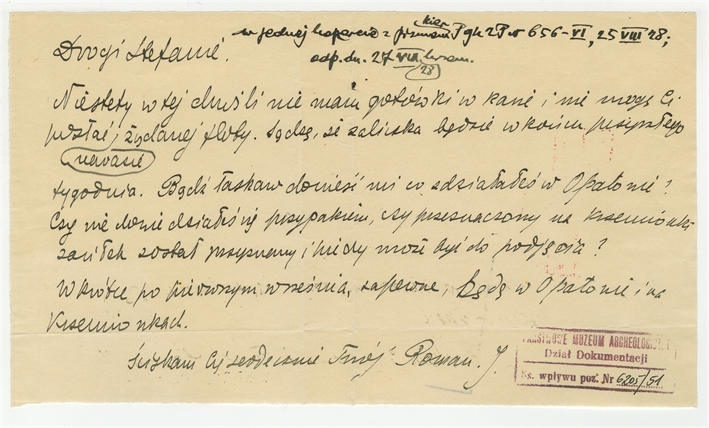 w jednej kopercie z pismem kier P gh 2P
656-VI, 25 VIII 28;
odp. dn. 27 VIII
28
Drogi Stefanie.
Niestety w tej chwili nie mam gotówki w kasie i nie mogę Ci
posłać żądanej floty. Sądzę, że zaliczka będzie w końcu przyszłego
tygodnia. Bądź łaskaw donieść mi co zdziałałeś w Opatowie?
Czy nie dowiedziałeś się przypadkiem, czy przeznaczony na Krzemionki
zasiłek został przyznany i kiedy może być do podjęcia?
Wkrótce po pierwszym września, zapewne, będę w Opatowie i na
Krzemionkach.
Ściskam Cię serdecznie Twój Roman. J.
PAŃSTWOWE MUZEUM ARCHEOLOGICZNE
Dział Dokumentacji
Ks. wpływu poz. Nr 6205/51